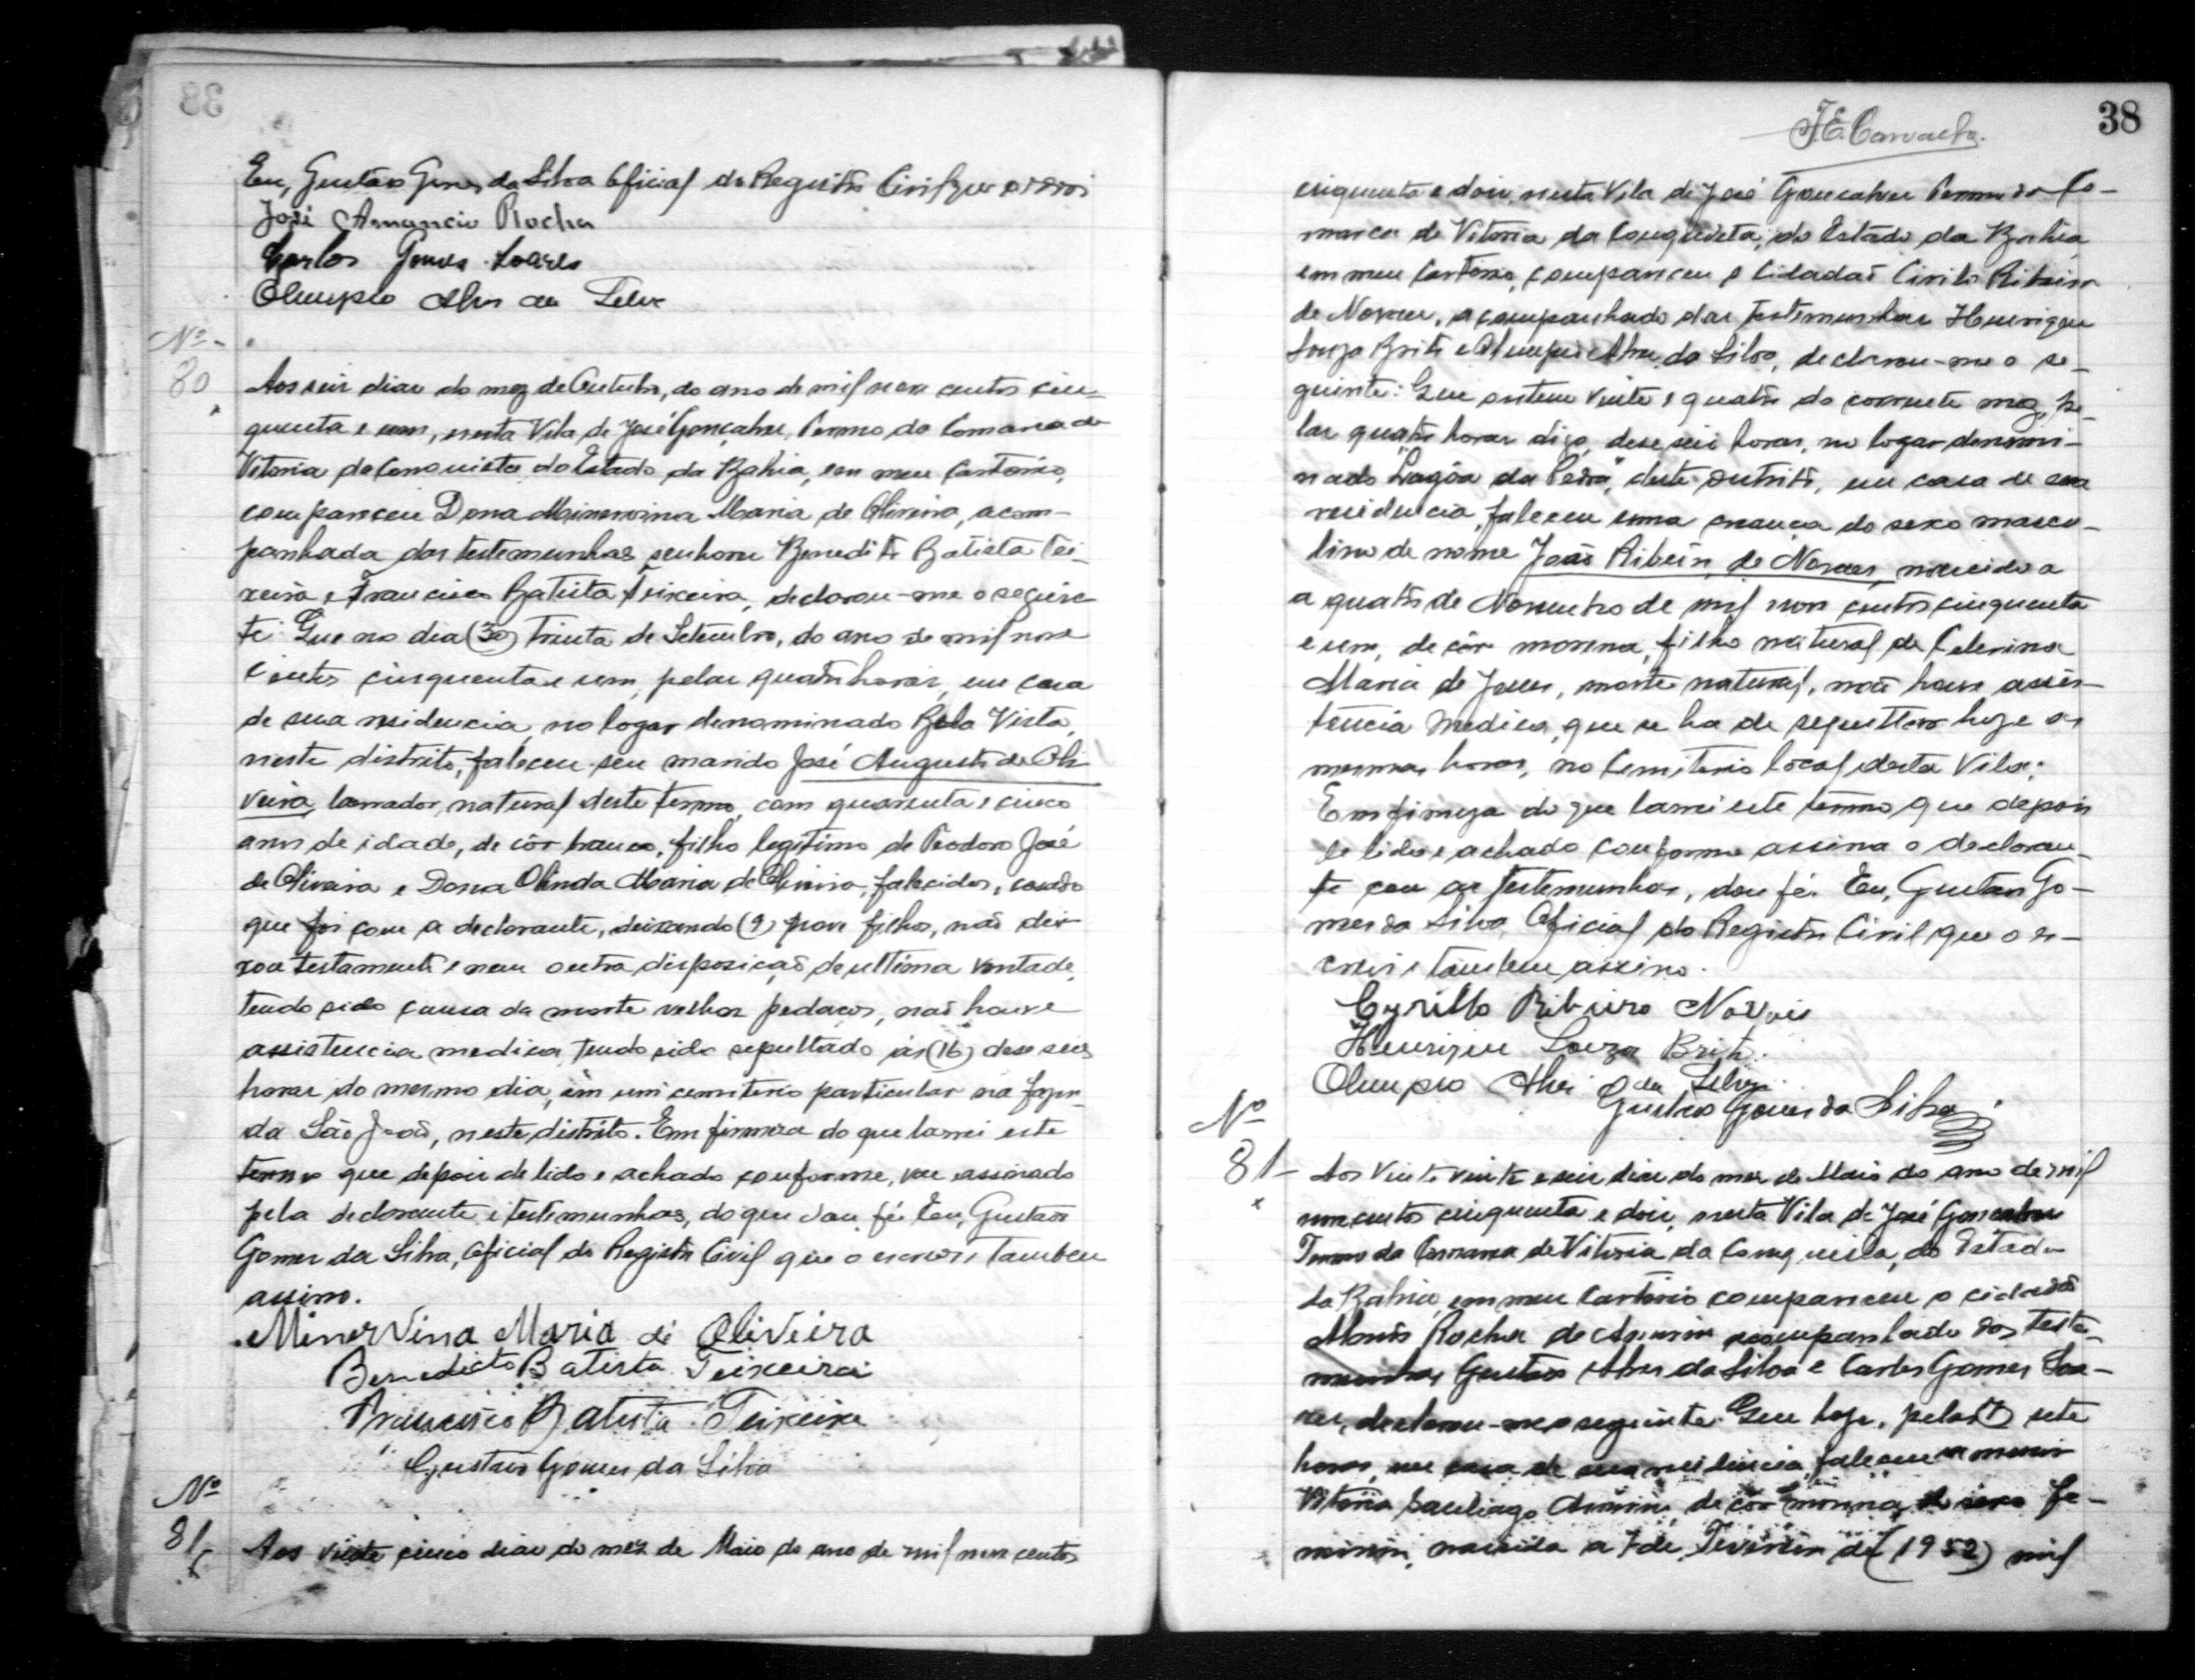 Eu, Gustavo Gomes da Silva Oficial do Registro Civil que escrevi
José Amancio Rocha
Carlos Gomes Soares
Olimpio Alves da Silva
Nº
80
Aos seis dias do mez de Outubro, do ano de mil nove centos cin-
quenta e um, nesta Vila de José Gonçalves, Termo da Comarca de
Vitoria da Conquista do Estado da Bahia, em meu Cartorio,
compareceu Dona Minervina Maria de Oliveira, acom-
panhada das testemunhas senhores Benedito Batista Tei-
xeira e Francisco Batista Teixeira, declarou-me o seguin-
te: Que no dia (30) trinta de Setembro, do ano de mil nove
centos cinquenta e um, pelas quatro horas, em casa
de sua residencia, no logar denominado Bela Vista,
neste distrito, faleceu seu marido José Augusto de Oli
veira, lavrador, natural deste termo, com quarenta e cinco
anos de idade, de côr branca, filho legitimo de Teodoro José
de Oliveira e Dona Olinda Maria de Oliveira, falecidos, casado
que foi com a declarante, deixando (9) nove filhos, não dei-
xou testamento e nem outra disposição de ultima vontade,
tendo sido causa da morte velhos pedaços, não houve
assistencia medica, tendo sido sepultado ás (16) deseseis
horas do mesmo dia, em um cemiterio particular na fazen-
da São João, neste distrito. Em firmeza do que lavrei este
termo que depois de lido e achado conforme, vae assinado
pela declarante e testemunhas, do que dou fé. Eu, Gustavo
Gomes da Silva, Oficial do Registro Civil que o escrevi e tambem
assino.
Minervina Maria de Oliveira
Benedicto Batista Teixeira
Francisco Batista Teixeira
Gustavo Gomes da Silva
Nº
81
Aos vinte cinco dias do mez de Maio do ano de mil nove centos
38
J.E. Carvalho.
cinquenta e dois, nesta Vila de José Gonçalves Termo da Co-
marca de Vitoria da Conquista, do Estado da Bahia
em meu Cartorio, compareceu o Cidadão Cirilo Ribeiro
de Novaes, acompanhado das testemunhas Henrique
Souza Brito e Olimpio Alves da Silva, declarou-me o se-
guinte: Que ontem vinte e quatro do corrente mez, pe-
las quatro horas digo, deseseis horas, no logar denomi-
nado "Lagôa da Pedra", deste distrito, em casa de sua
residencia, faleceu uma creança do sexo mascu-
lino de nome João Ribeiro de Novaes, nascido a
a quatro de Novembro de mil nove centos cinquenta
e um, de côr morena, filho natural de Celerina
Maria de Jesus, morte natural, não houve assis-
tencia medica, que se ha de sepultar hoje as
mesmas horas, no Cemiterio local desta Vila.
Em firmeza do que lavrei este termo que depois
de lido e achado conforme assina o declaran-
te com as testemunhas, dou fé. Eu, Gustavo Go-
mes da Silva Oficial do Registro Civil que o es-
crevi e tambem assino.
Cyrillo Ribeiro Novais
Henrique Souza Brito.
Olimpio Alves da Silva
Gustavo Gomes da Silva
Nº
81-
Aos vinte vinte e seis dias do mez de Maio do ano de mil
nove centos cinquenta e dois, nesta Vila de José Gonçalves
Termo da Comarca de Vitoria da Conquista, do Estado
da Bahia, em meu Cartorio compareceu o cidadão
Rocha de Amorim acompanhado das teste-
munhas Gustavo Alves da Silva e Carlos Gomes Soa-
res, declarou-me o seguinte: Que hoje, pelas (7) sete
horas, em casa de sua residencia, faleceu a menor
Vitoria Santiago Amorim, de côr morena, do sexo fe-
minino, nascida a 7 de Fevereiro de (1952) mil